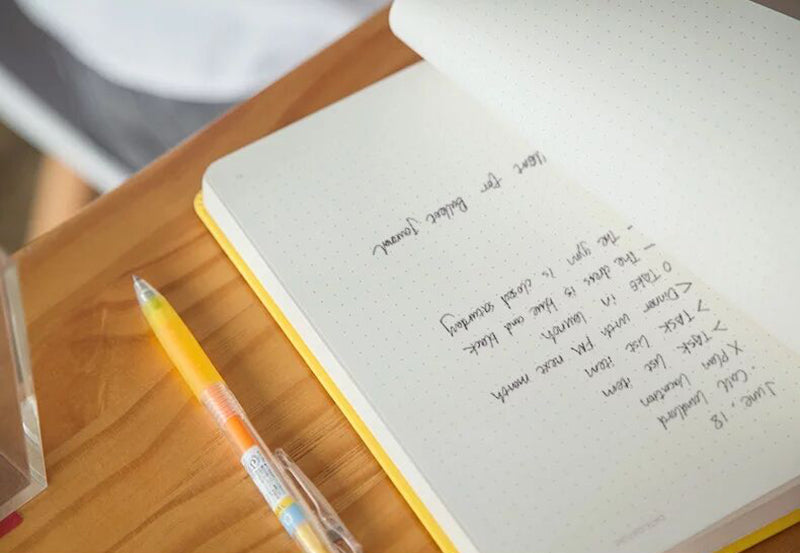 June . 18
· Call Landlord
X Plan Vacation
> TASK list item
> TASK list item
< Dinner with PM next month
O Take in launch
– The dress is blue and black
– The gym is closed saturday
for Bullet Journal